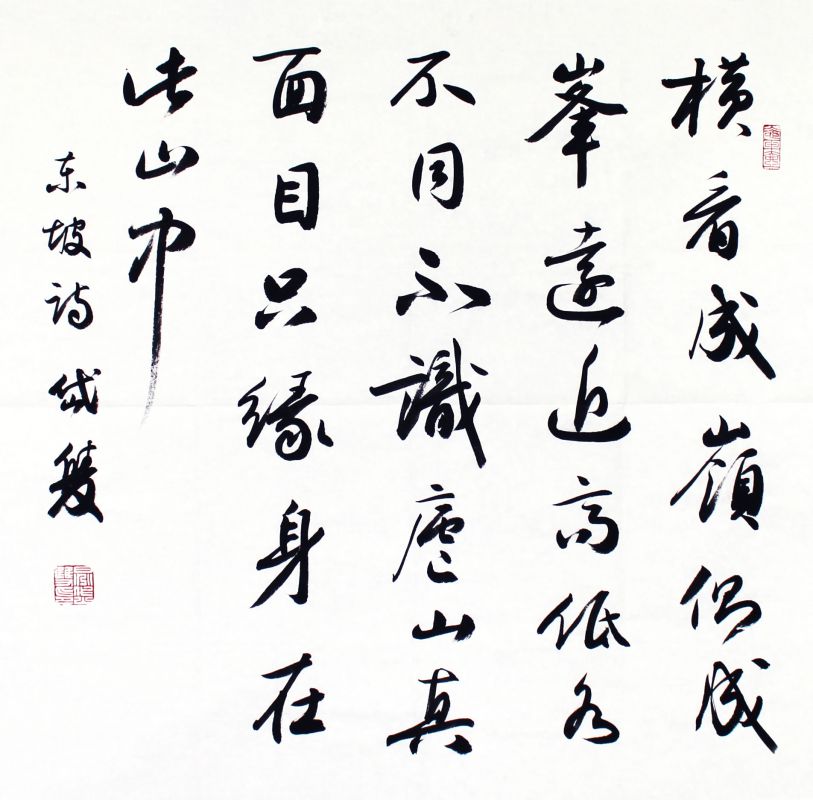 横看成嶺側成
峯遠近高低各
不同不識廬山真
面目只緣身在
此山中
东坡诗 岱